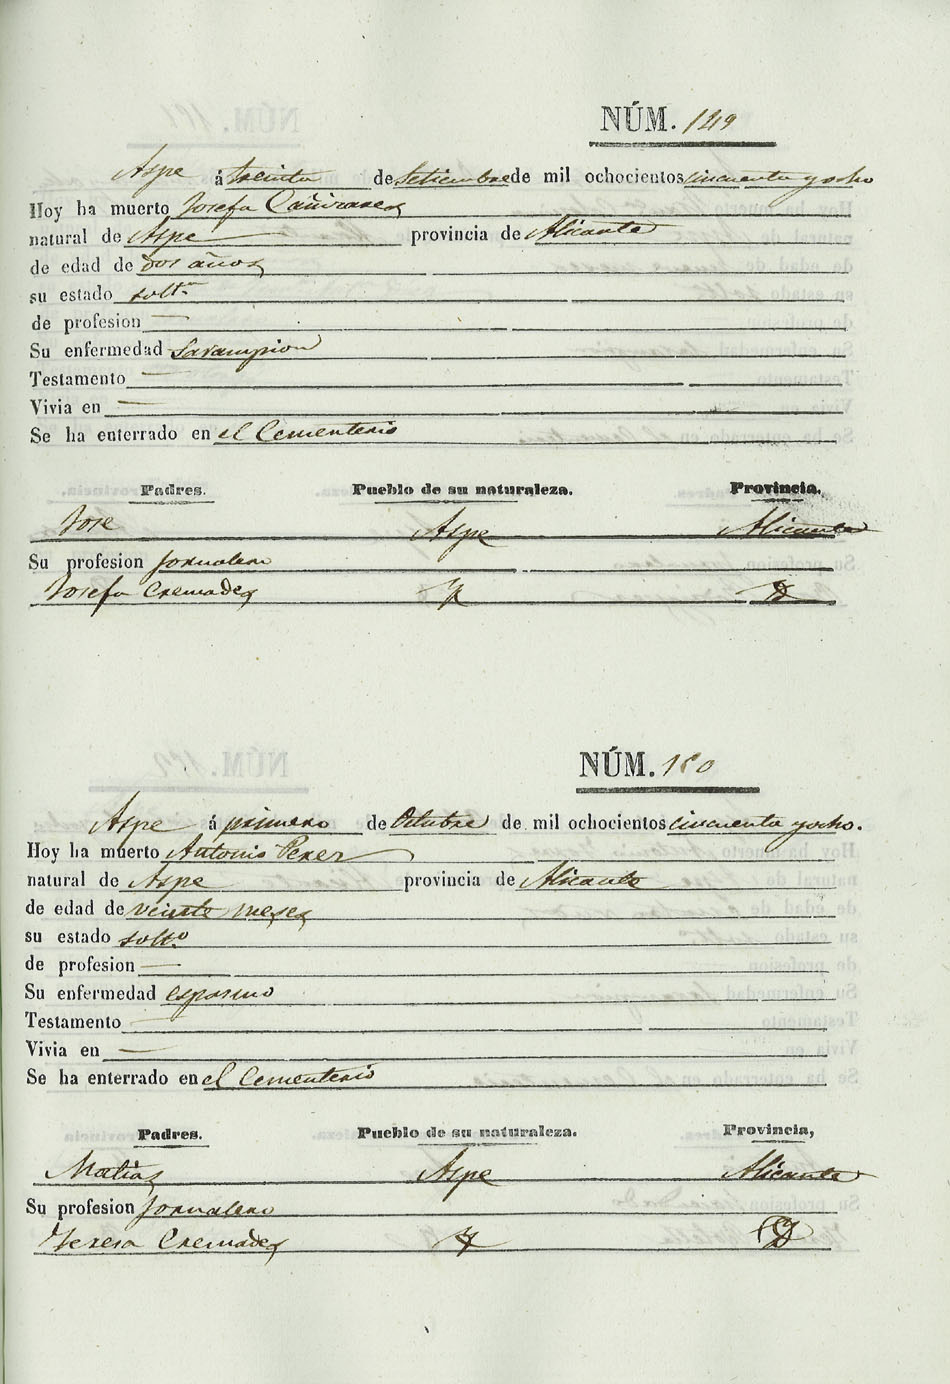 NÚM. 149
Aspe á treinta de Setiembre de mil ochocientos cincuenta y ocho
Hoy ha muerto Josefa Cañizares
natural de Aspe provincia de Alicante
de edad de dos años
su estado solt.ª
de profesion —
Su enfermedad Sarampion
Testamento —
Vivia en —
Se ha enterrado en el Cementerio
Padres. Pueblo de su naturaleza. Provincia.
Jose Aspe Alicante
Su profesion Jornalero
Josefa Cremades
NÚM. 150
Aspe á primero de Octubre de mil ochocientos cincuenta y ocho.
Hoy ha muerto Antonio Perez
natural de Aspe provincia de Alicante
de edad de veinte meses
su estado solt.º
de profesion —
Su enfermedad espasmo
Testamento —
Vivia en —
Se ha enterrado en el Cementerio
Padres. Pueblo de su naturaleza. Provincia,
Matias Aspe Alicante
Su profesion Jornalero
Teresa Cremades